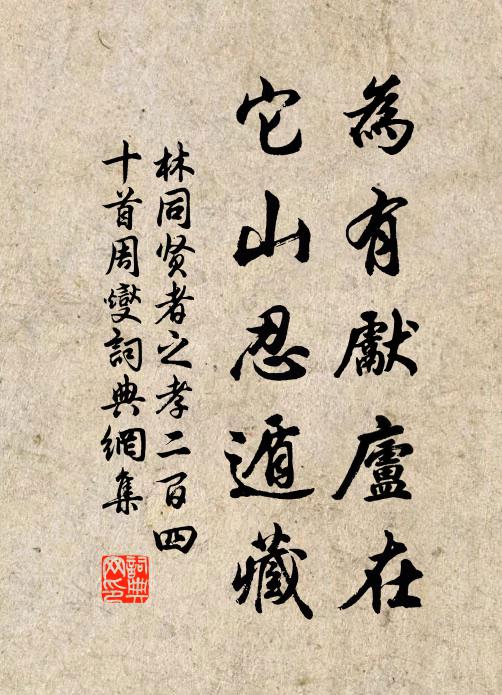 為有獻廬在
它山忍遁藏
林同贤者之孝二百四
十首周燮詞典網集
詞典
网印